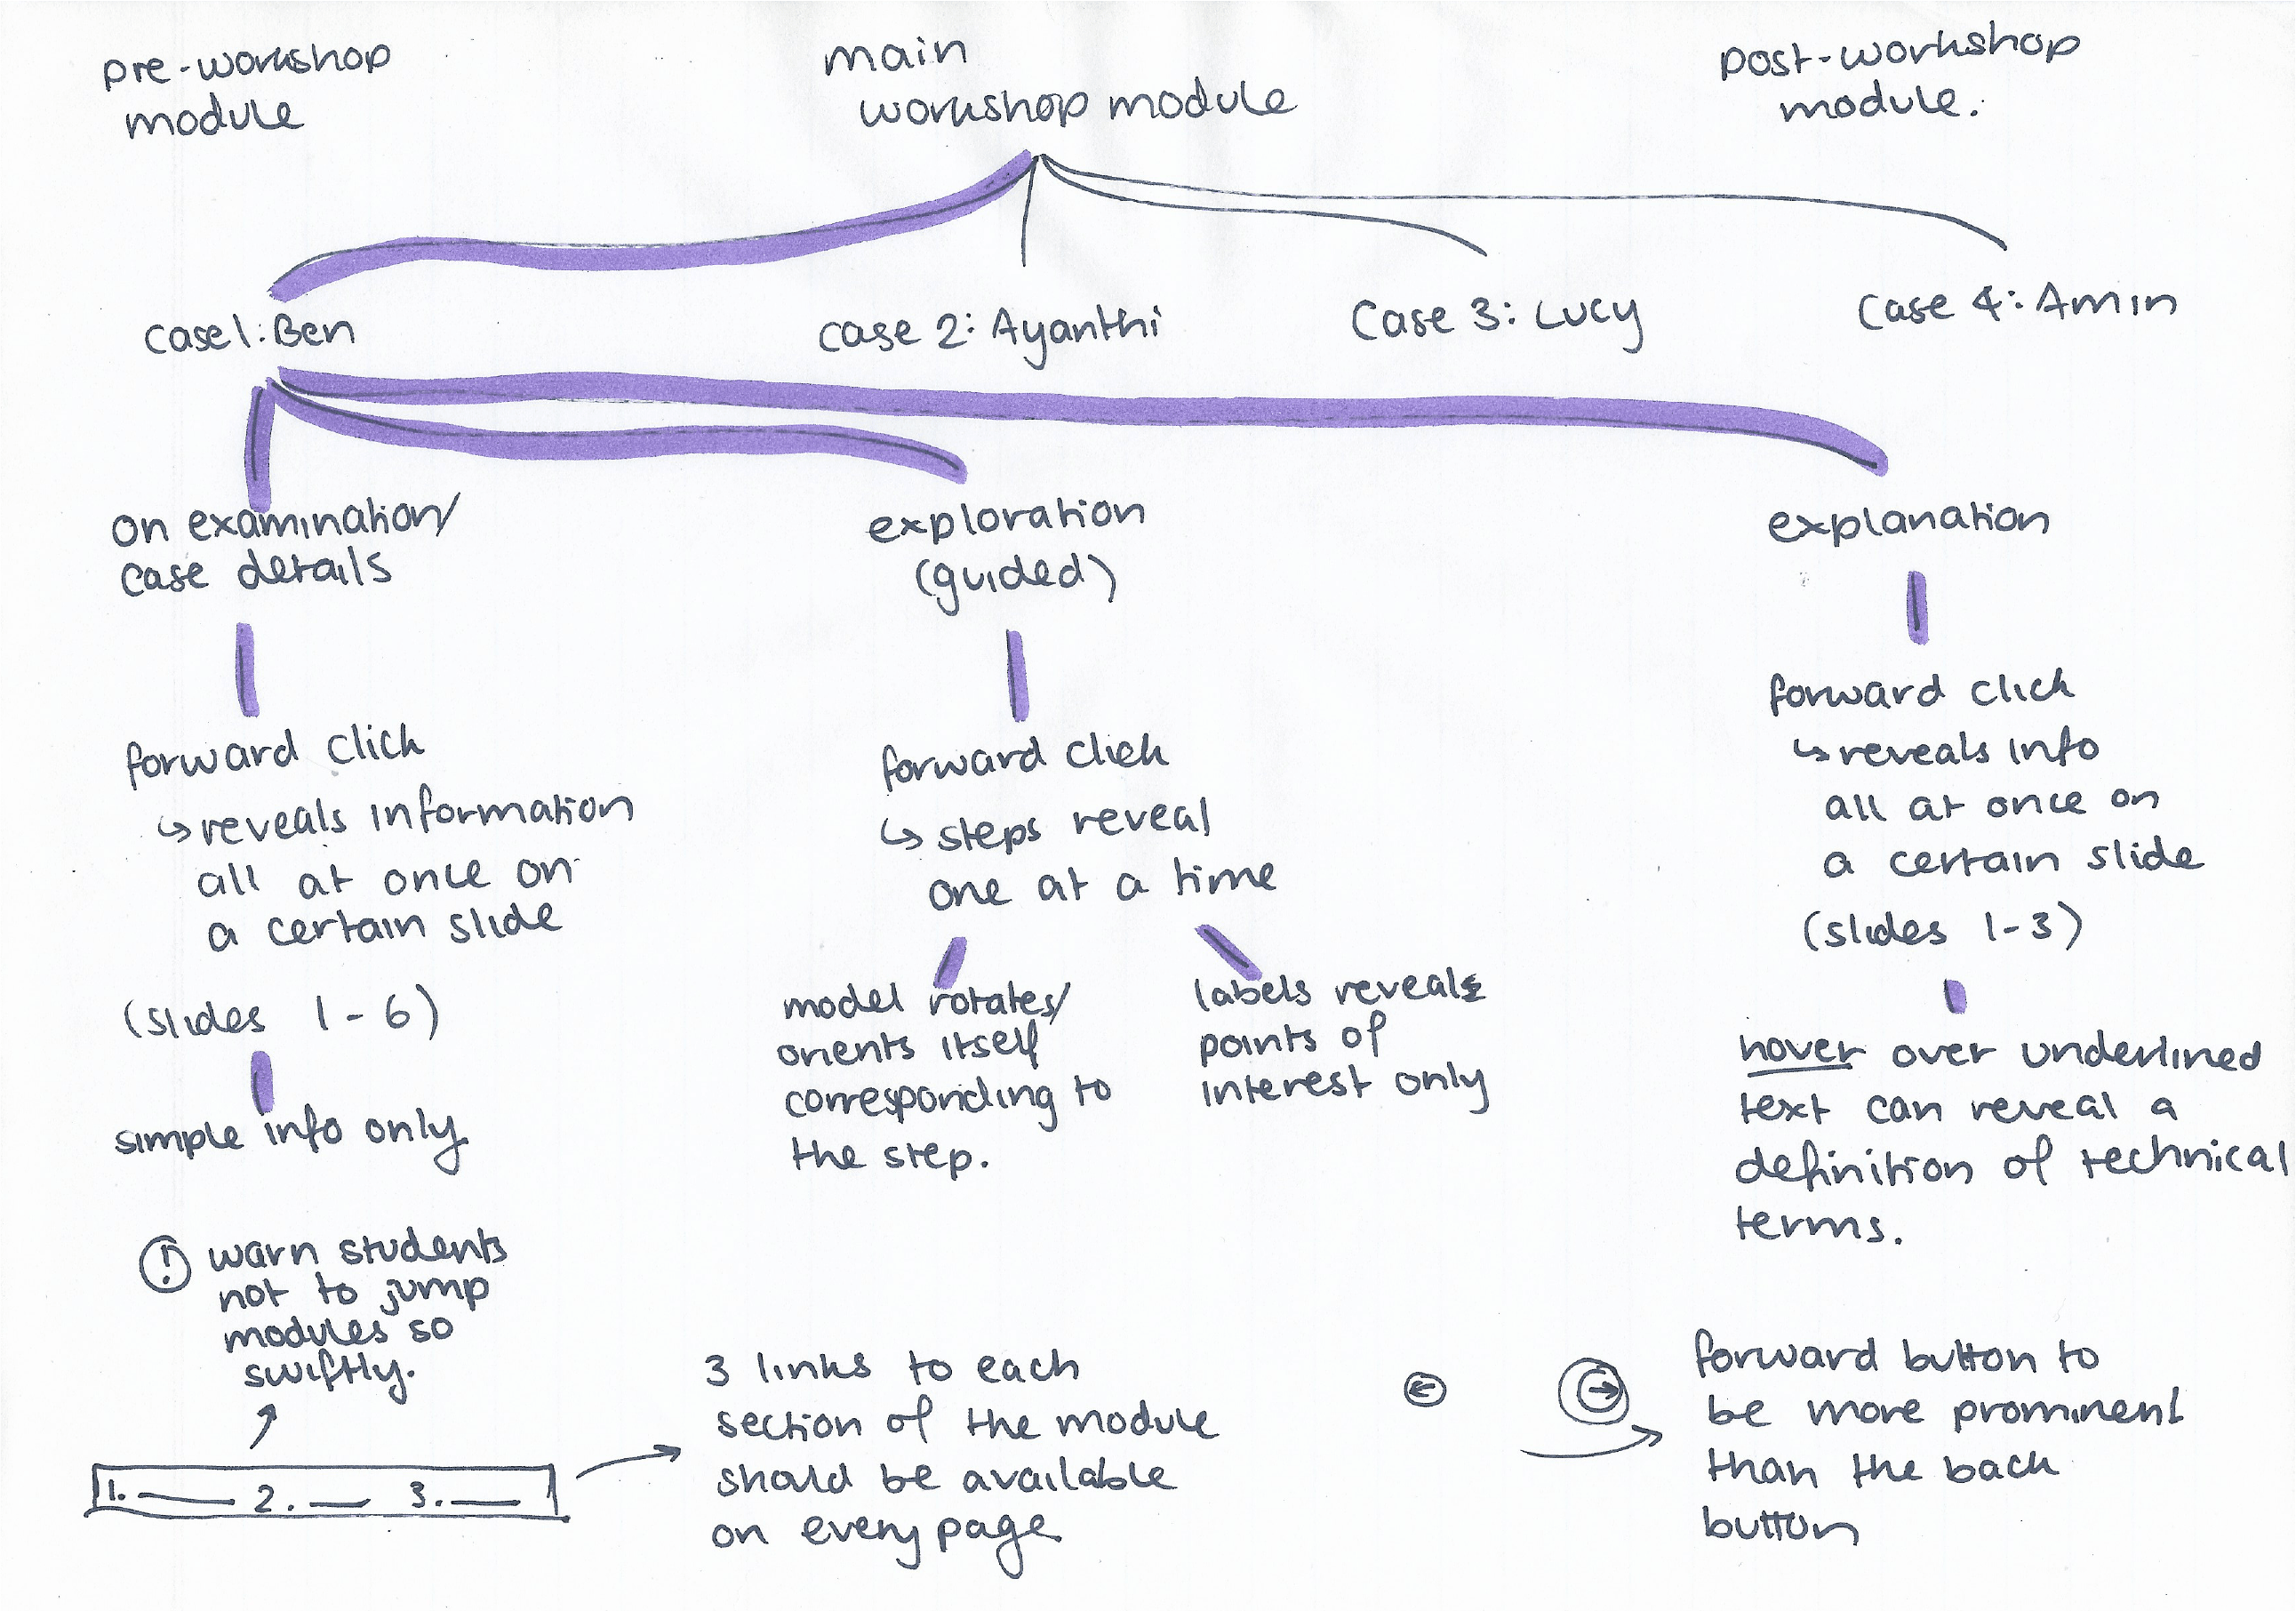 pre-workshop
module
main
workshop module
post-workshop
module.
case 1: Ben
case 2: Ayanthi
case 3: Lucy
case 4: Amin
on examination/
case details
exploration
(guided)
explanation
forward click
↳ reveals information
all at once on
a certain slide
(slides 1-6)
simple info only
forward click
↳ steps reveal
one at a time
model rotates/
orients itself
corresponding to
the step.
labels reveals
points of
interest only
forward click
↳ reveals info
all at once on
a certain slide
(slides 1-3)
hover over underlined
text can reveal a
definition of technical
terms.
! warn students
not to jump
modules so
swiftly.
1. 2. 3.
3 links to each
section of the module
should be available
on every page
← →
forward button to
be more prominent
than the back
button